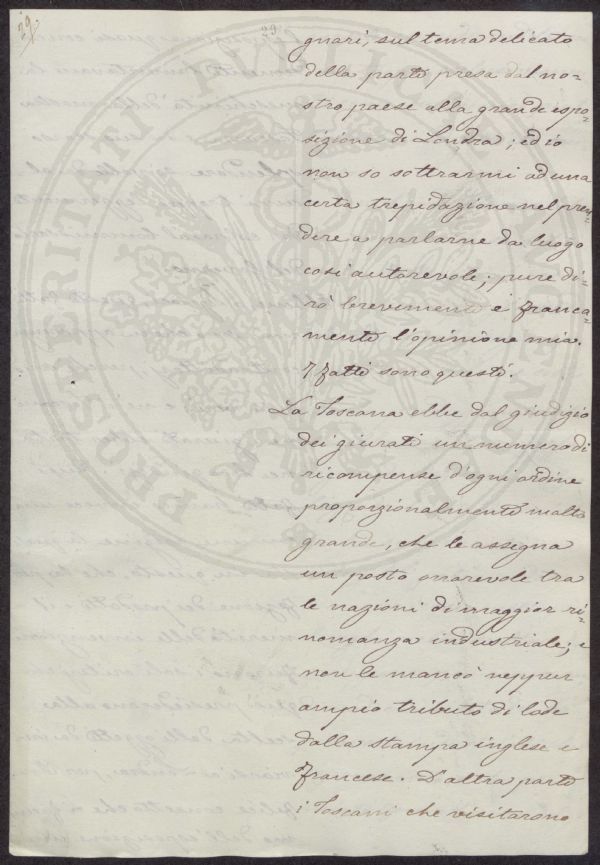 29
29
gnari, sul tema delicato
della parte presa dal no-
stro paese alla grande espo-
sizione di Londra; ed io
non so sottrarmi ad una
certa trepidazione nel pren-
dere a parlarne da luogo
così autorevole; pure di-
rò brevemente e franca-
mente l'opinione mia.
I fatti sono questi.
La Toscana ebbe dal giudizio
dei giurati un numero di
ricompense d'ogni ordine
proporzionalmente molto
grande, che le assegna
un posto onorevole tra
le nazioni di maggior ri-
nomanza industriale; e
non le mancò neppur
ampio tributo di lode
dalla stampa inglese e
francese. D'altra parte
i Toscani che visitarono